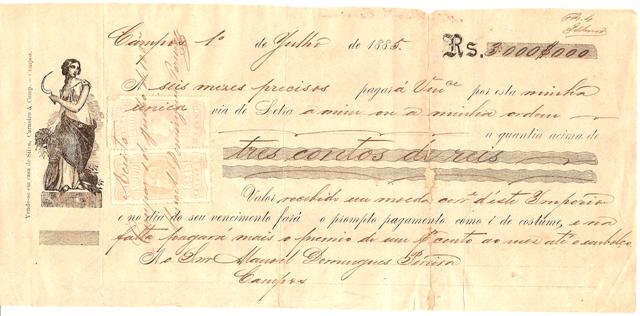 Campos 1º de Julho de 1885. Rs. 3.000$000
A seis mezes precisos pagará Vmce por esta minha
unica via de Letra a mim ou a minha ordem
a quantia acima de
tres contos de reis
Valor recebido em moeda corre d'este Imperio
e no dia do seu vencimento fará o prompto pagamento como é de costume, e na
falta pagará mais o premio de um pr cento ao mez até o embolço
Ao Snr Manoel Domingues Pereira
Campos
Vende-se em casa de Silva, Carneiro & Comp. — Campos.
Aceito